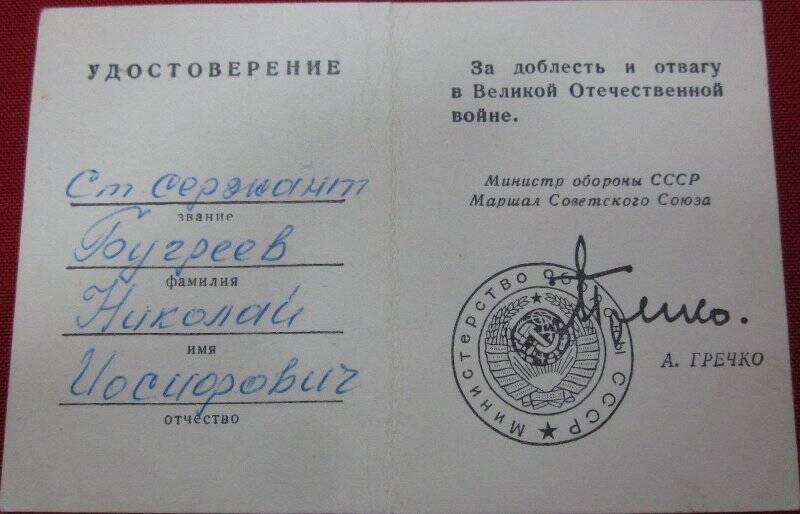 УДОСТОВЕРЕНИЕ
Ст сержант
звание
Бугреев
фамилия
Николай
имя
Иосифович
отчество
За доблесть и отвагу
в Великой Отечественной
войне.
Министр обороны СССР
Маршал Советского Союза
Гречко.
А. ГРЕЧКО
Министерство Обороны СССР